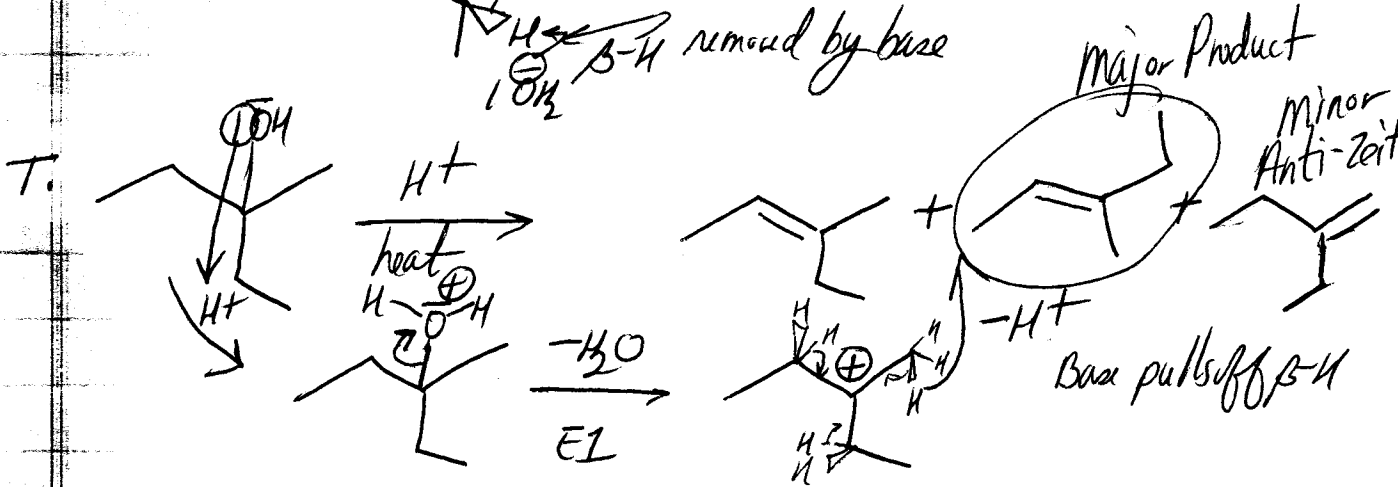 H β-H removed by base
⊖
:OH₂
Major Product
Minor
Anti-Zeit
T.
OH
H+
heat
+
+
H+
H ⊕ H
O
-H₂O
E1
H H ⊕ H H H
H
H
-H+
Base pulls off β-H